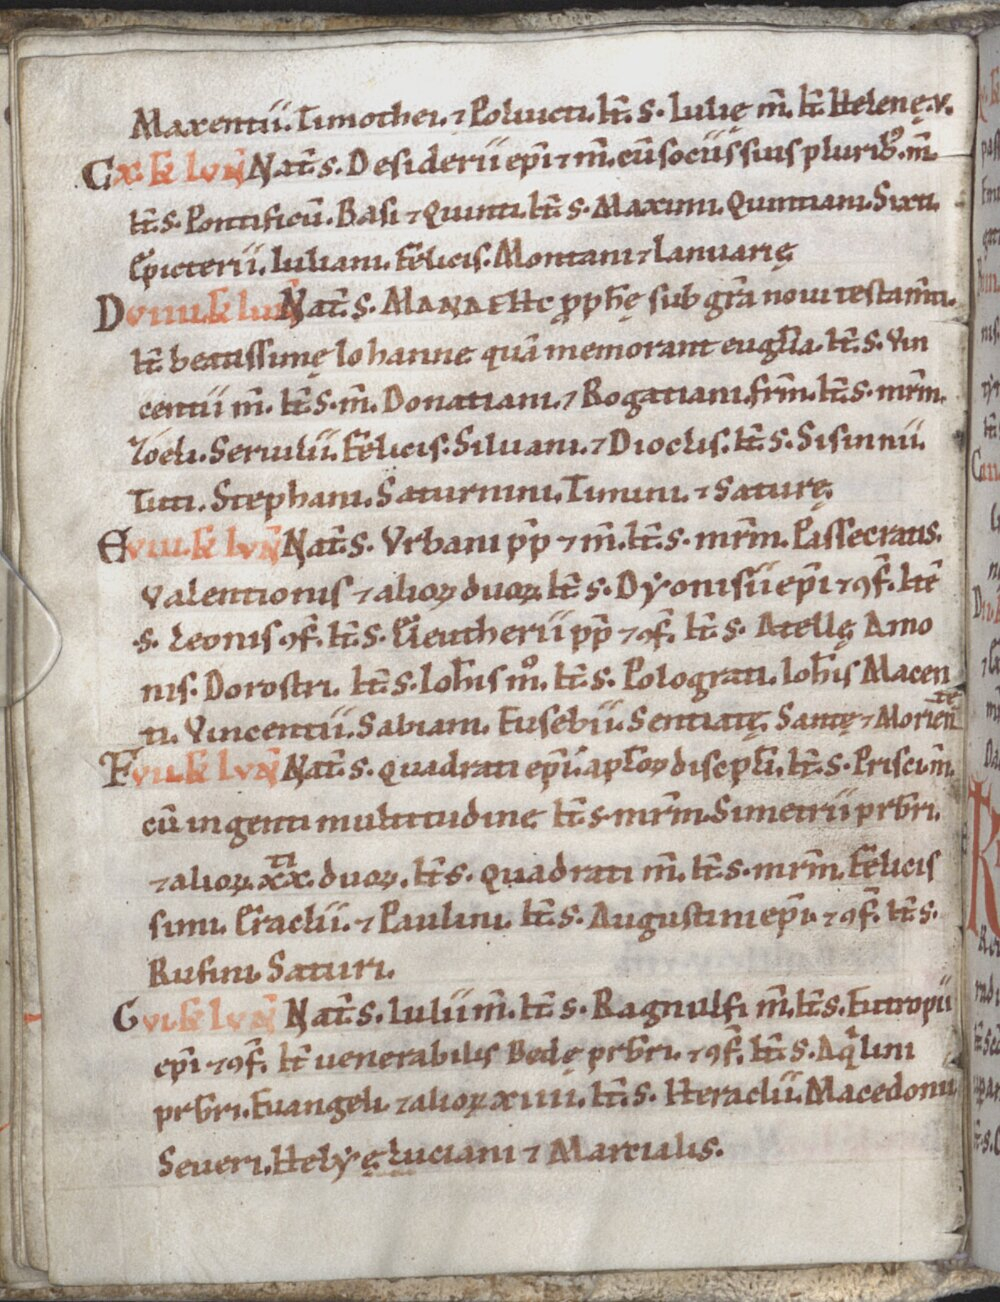 Maxentii. Timothei. ⁊ Poluicti. It̃ s. Iulię m̃. It̃ Helenę. v.
C x. kł lvñ Nat̃. s. Desiderii ep̃i ⁊ m̃. cũ sociis suis plurib᷒. m̃
It̃. s. Pontificũ. Basi ⁊ Quinti. It̃ s. Maximi. Quintiani. Sixti.
Epicterii. Iuliani. Felicis. Montani ⁊ Ianuarię
D viiii. kł luñ Nat̃. s. MANAEHE ꝓph̃ę sub gr̃a noui testam̃ti.
It̃ beatissimę Iohanne quã memorant eugł̃ia. It̃. s. Vin
centii m̃. It̃. s. m̃. Donatiani. ⁊ Rogatiani. fr̃m. It̃. s. mr̃m.
Zoeli. Seruilii. Felicis. Siluani. ⁊ Dioclis. It̃. s. Sisinnii.
Titi. Stephani. Saturnini. Timini. ⁊ Saturę.
E viii. kł lvñ Nat̃. s. Vrbani pp̃ ⁊ m̃. It̃. s. mr̃m. Passecratis.
Valentionis ⁊ alioꝝ duoꝝ It̃ s. Dyonisii ep̃i ⁊ ꝯf̃. Itẽ
.s. Leonis ꝯf̃. It̃. s. Eleutherii pp̃ ⁊ ꝯf̃. It̃. s. Atellę Amo
nis. Dorostri. It̃. s. Ioh̃is mͦ. It̃. s. Polograti. Ioh̃is Macen
ti. Vincentii. Sabiani. Eusebii. Sentiatę. Santę ⁊ Morientẽ
F vii. kł lvñ Nat̃. s. Quadrati ep̃i. apł̃oꝝ discipł̃i. It̃. s. Prisci. m̃.
cũ ingenti multitudine It̃ s. mr̃m. Simetrii prb̃ri.
⁊ alioꝝ. xx.ti duoꝝ. It̃. s. Quadrati m̃. It̃. s. mr̃m. Felicis
simi. Eraclii. ⁊ Paulini. It̃. s. Augustini ep̃i. ⁊ ꝯf̃. It̃. s.
Rufini. Saturi.
G vi. kł lvñ Nat̃. s. Iulii m̃. It̃. s. Ragnulfi m̃. It̃. s. Eutropii
ep̃i ⁊ ꝯf̃. It̃ uenerabilis Bedę prb̃ri. ⁊ ꝯf̃. It̃. s. Aqͥlini
prb̃ri. Euangeli. ⁊ alioꝝ xiiii. It̃. s. Heraclii. Macedonii
Seueri. Helyę Luciani ⁊ Martialis.